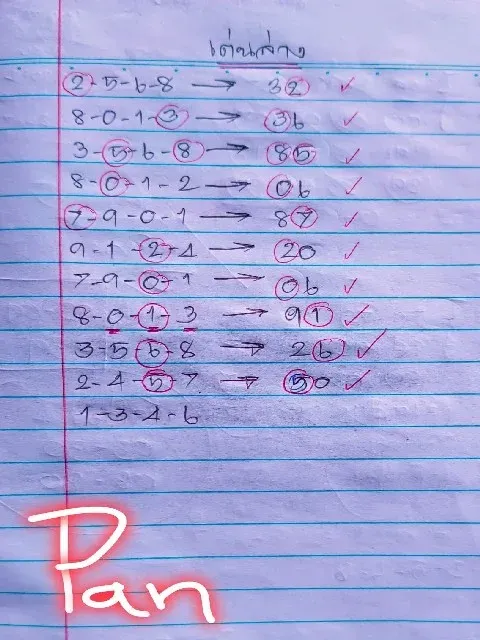 เด่นล่าง
2-5-6-8 → 32 ✓
8-0-1-3 → 36 ✓
3-5-6-8 → 85 ✓
8-0-1-2 → 06 ✓
7-9-0-1 → 87 ✓
9-1-2-4 → 20 ✓
7-9-0-1 → 06 ✓
8-0-1-3 → 91 ✓
3-5-6-8 → 26 ✓
2-4-5-7 → 50 ✓
1-3-4-6
Pan